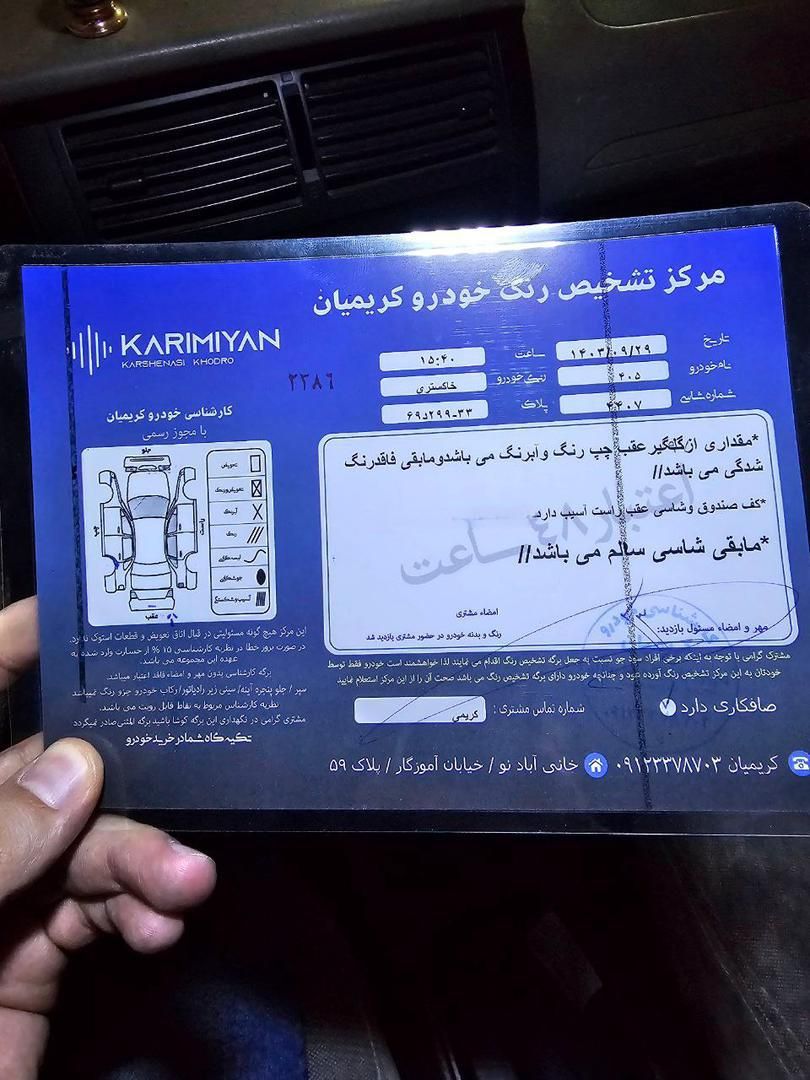 مرکز تشخیص رنگ خودرو کریمیان
KARIMIYAN
KARSHENASI KHODRO
۲۳۸۶
تاریخ ۱۴۰۳/۰۹/۲۹ ساعت ۱۵:۴۰
نام خودرو ۴۰۵ رنگ خودرو خاکستری
شماره شاسی ۴۴۰۷ پلاک ۳۳-۲۹۹د۶۹
کارشناسی خودرو کریمیان
با مجوز رسمی
جلو
چپ
راست
عقب
تعویض
تعویض و رنگ
آبرنگ
رنگ
لیسه گیری
جوشکاری
آسیب و شکستگی
*مقداری ازگلگیر عقب چپ رنگ و آبرنگ می باشدومابقی فاقدرنگ
شدگی می باشد//
*کف صندوق وشاسی عقب راست آسیب دارد
*مابقی شاسی سالم می باشد//
اعتبار ۴۸ ساعت
امضاء مشتری
رنگ و بدنه خودرو در حضور مشتری بازدید شد
مهر و امضاء مسئول بازدید:
این مرکز هیچ گونه مسئولیتی در قبال اتاق تعویض و قطعات استوک ندارد.
در صورت بروز خطا در نظریه کارشناسی ۱۵ % از خسارت وارد شده به
عهده این مجموعه می باشد.
برگه کارشناسی بدون مهر و امضاء فاقد اعتبار میباشد.
سپر / جلو پنجره /اینه/ سینی زیر رادیاتور/ رکاب خودرو جزو رنگ نمیباشد
نظریه کارشناس مربوط به نقاط قابل رویت می باشد.
مشتری گرامی در نگهداری این برگه کوشا باشید برگه المثنی صادر نمیگردد
تکیه گاه شما در خرید خودرو
مشترک گرامی با توجه به اینکه برخی افراد سود جو نسبت به جعل برگه تشخیص رنگ اقدام می نمایند لذا خواهشمند است خودرو فقط توسط
خودتان به این مرکز تشخیص رنگ آورده شود و چنانچه خودرو دارای برگه تشخیص رنگ می باشد صحت آن را از این مرکز استعلام نمایید
صافکاری دارد
شماره تماس مشتری : کریمی
کریمیان ۰۹۱۲۳۳۷۸۷۰۳ خانی آباد نو / خیابان آموزگار / پلاک ۵۹